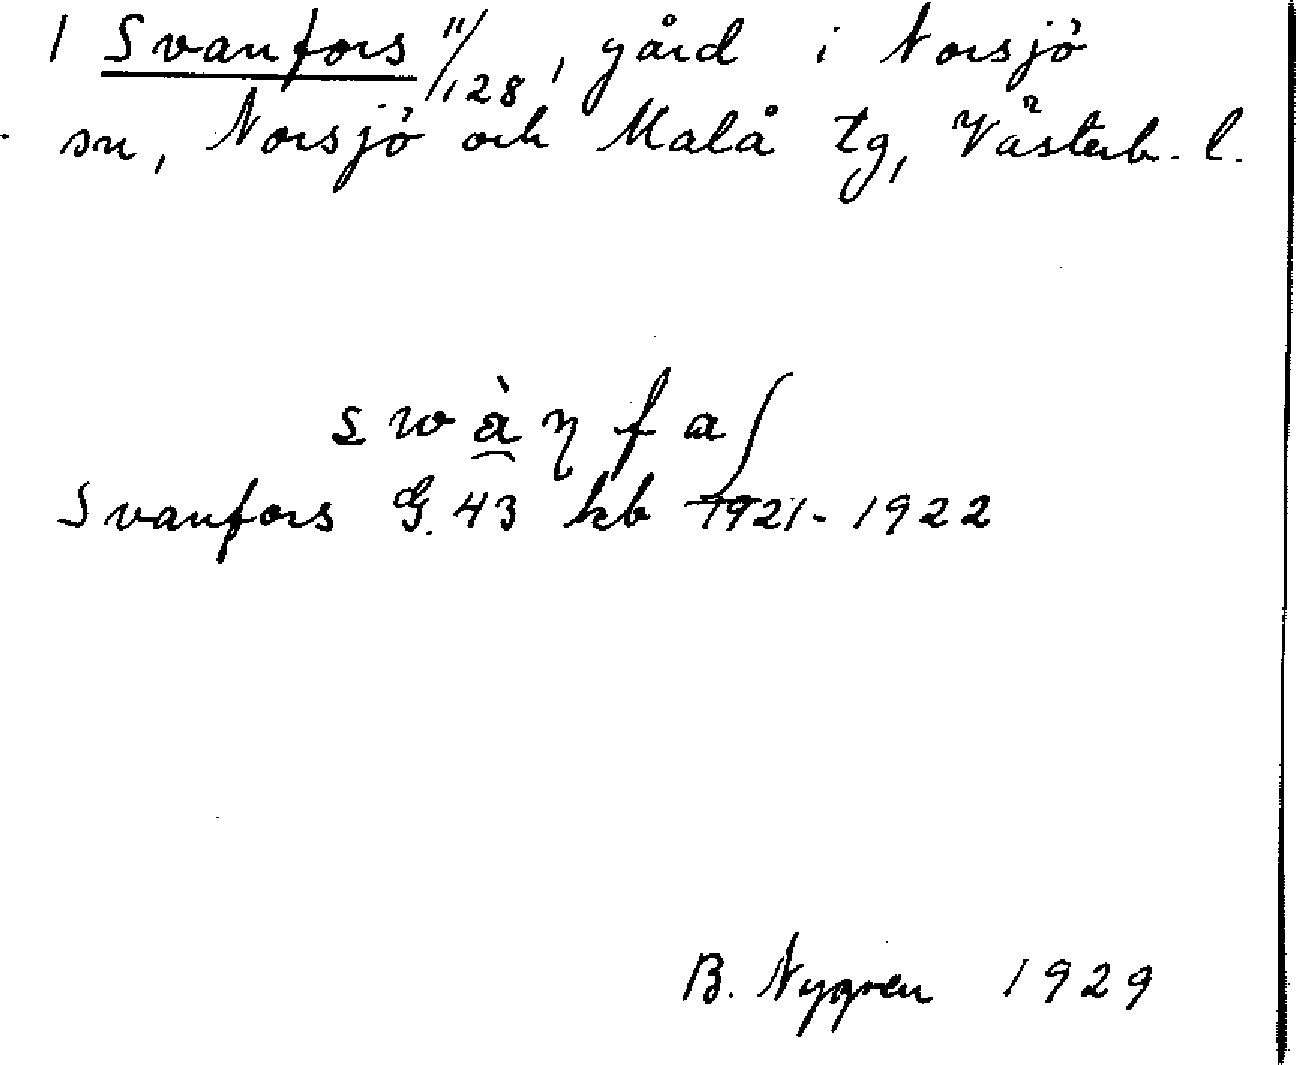 1 Svanfors 11/128, gård i Norsjö
sn, Norsjö och Malå tg, Västerb. l.
swàŋfaʃ
Svanfors G. 43 kb 1921-1922
B. Nygren 1929